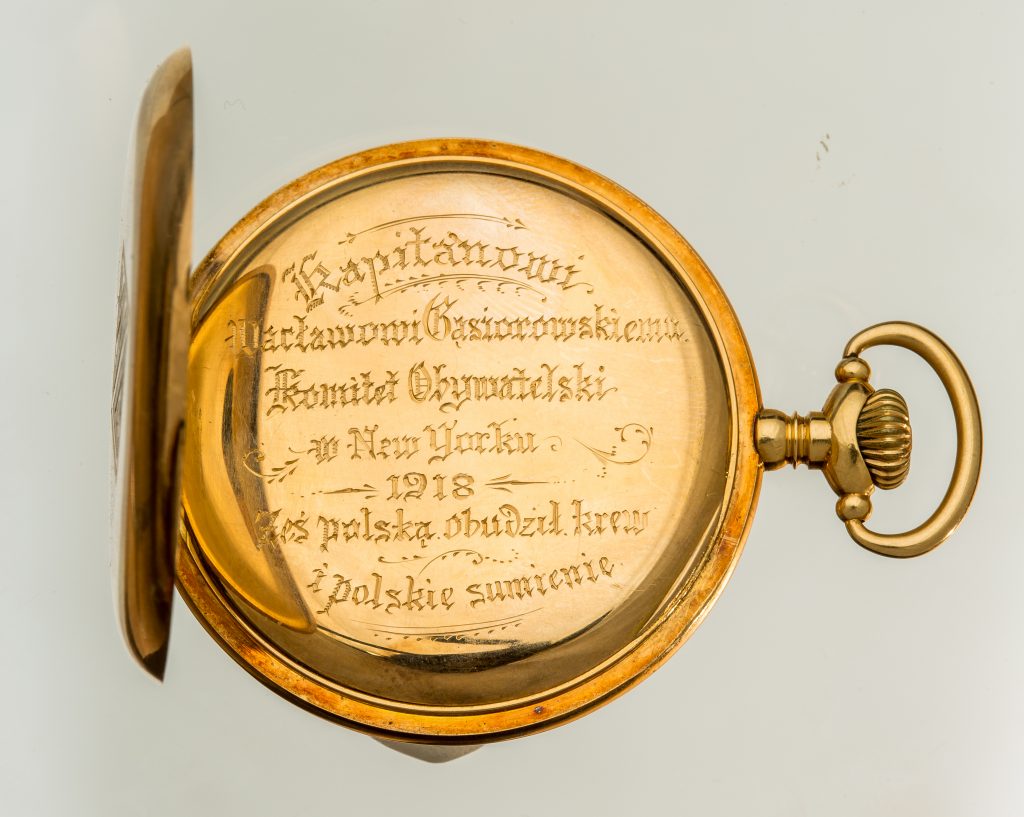 Kapitanowi
Wacławowi Gąsiorowskiemu.
Komitet Obywatelski
w New Yorku
1918
Żeś polską obudził krew
i polskie sumienie